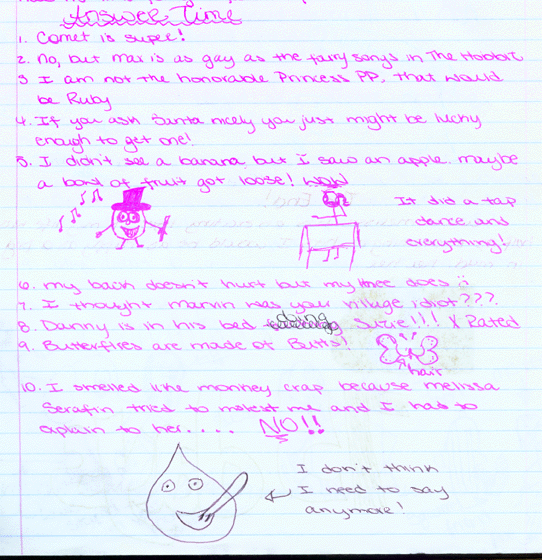 Answer Time
1. Comet is super!
2. No, but max is as gay as the fairy songs in The Hobbit
3 I am not the honorable Princess PP, that would
be Ruby
4. If you ask Santa nicely you just might be lucky
enough to get one!
5. I didn't see a banana but I saw an apple. maybe
a bowl of fruit got loose! wow
It did a tap
dance and
everything!
6. my back doesn't hurt but my knee does
7. I thought marvin was your village idiot???
8. Danny is in his bed doing Suzie!!! X Rated
9. Butterflies are made of Butts!
hair
10. I smelled like monkey crap because melissa
Serafin tried to molest me and I has to
explain to her.... NO!!
I don't think
I need to say
anymore!